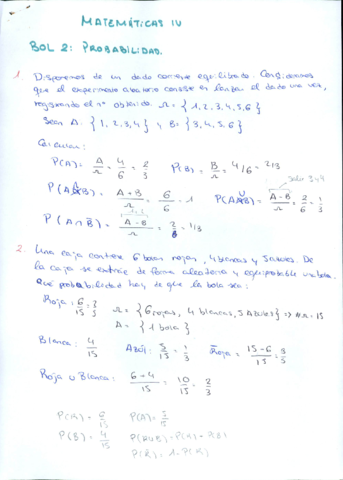 MATEMÁTICAS IV
BOL 2: PROBABILIDAD.
1. Disponemos de un dado corriente equilibrado. Consideramos
que el experimento aleatorio consiste en lanzar el dado una vez,
registrando el nº obtenido. Ω = {1, 2, 3, 4, 5, 6}
Sean A = {1, 2, 3, 4} y B = {3, 4, 5, 6}
Calcular:
P(A) = A/Ω = 4/6 = 2/3 P(B) = B/Ω = 4/6 = 2/3
P(A B) = A+B/Ω = 6/6 = 1 P(A B) = A-B/Ω = 2/6 = 1/3
P(A∩B̄) = A-B/Ω = 1/3
2. Una caja contiene 6 bolas rojas, 4 blancas y 5 azules. De
la caja se extrae de forma aleatoria y equiprobable una bola.
Qué probabilidad hay de que la bola sea:
Roja: 6/15 Ω = {6 rojas, 4 blancas, 5 Azules} => #Ω = 15
A = {1 bola}
Blanca: 4/15 Azul: 5/15 = 1/3 Roja = 15-6/15 = 3/5
Roja o Blanca: 6+4/15 = 10/15 = 2/3
P(R) = 6/15 P(A) = 5/15
P(B) = 4/15 P(R∪B) = P(R) + P(B)
P(R̄) = 1 - P(R)